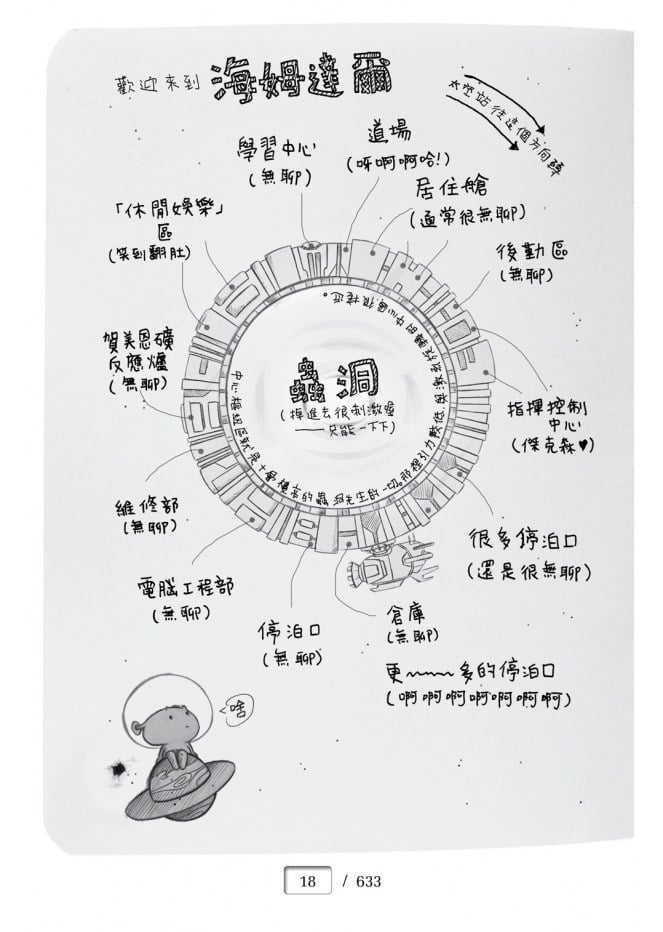 歡迎來到 海姆達爾
太空站往這個方向轉
道場
(呀啊啊哈!)
學習中心
(無聊)
居住艙
(通常很無聊)
「休閒娛樂」
區
(笑到翻肚)
後勤區
(無聊)
賀美恩礦
反應爐
(無聊)
蟲洞
(掉進去很刺激喔
——只能一下下)
指揮控制
中心
(傑克森♥)
維修部
(無聊)
很多停泊口
(還是很無聊)
電腦工程部
(無聊)
停泊口
(無聊)
倉庫
(無聊)
更~~~多的停泊口
(啊啊啊啊啊啊啊)
啥
18 / 633